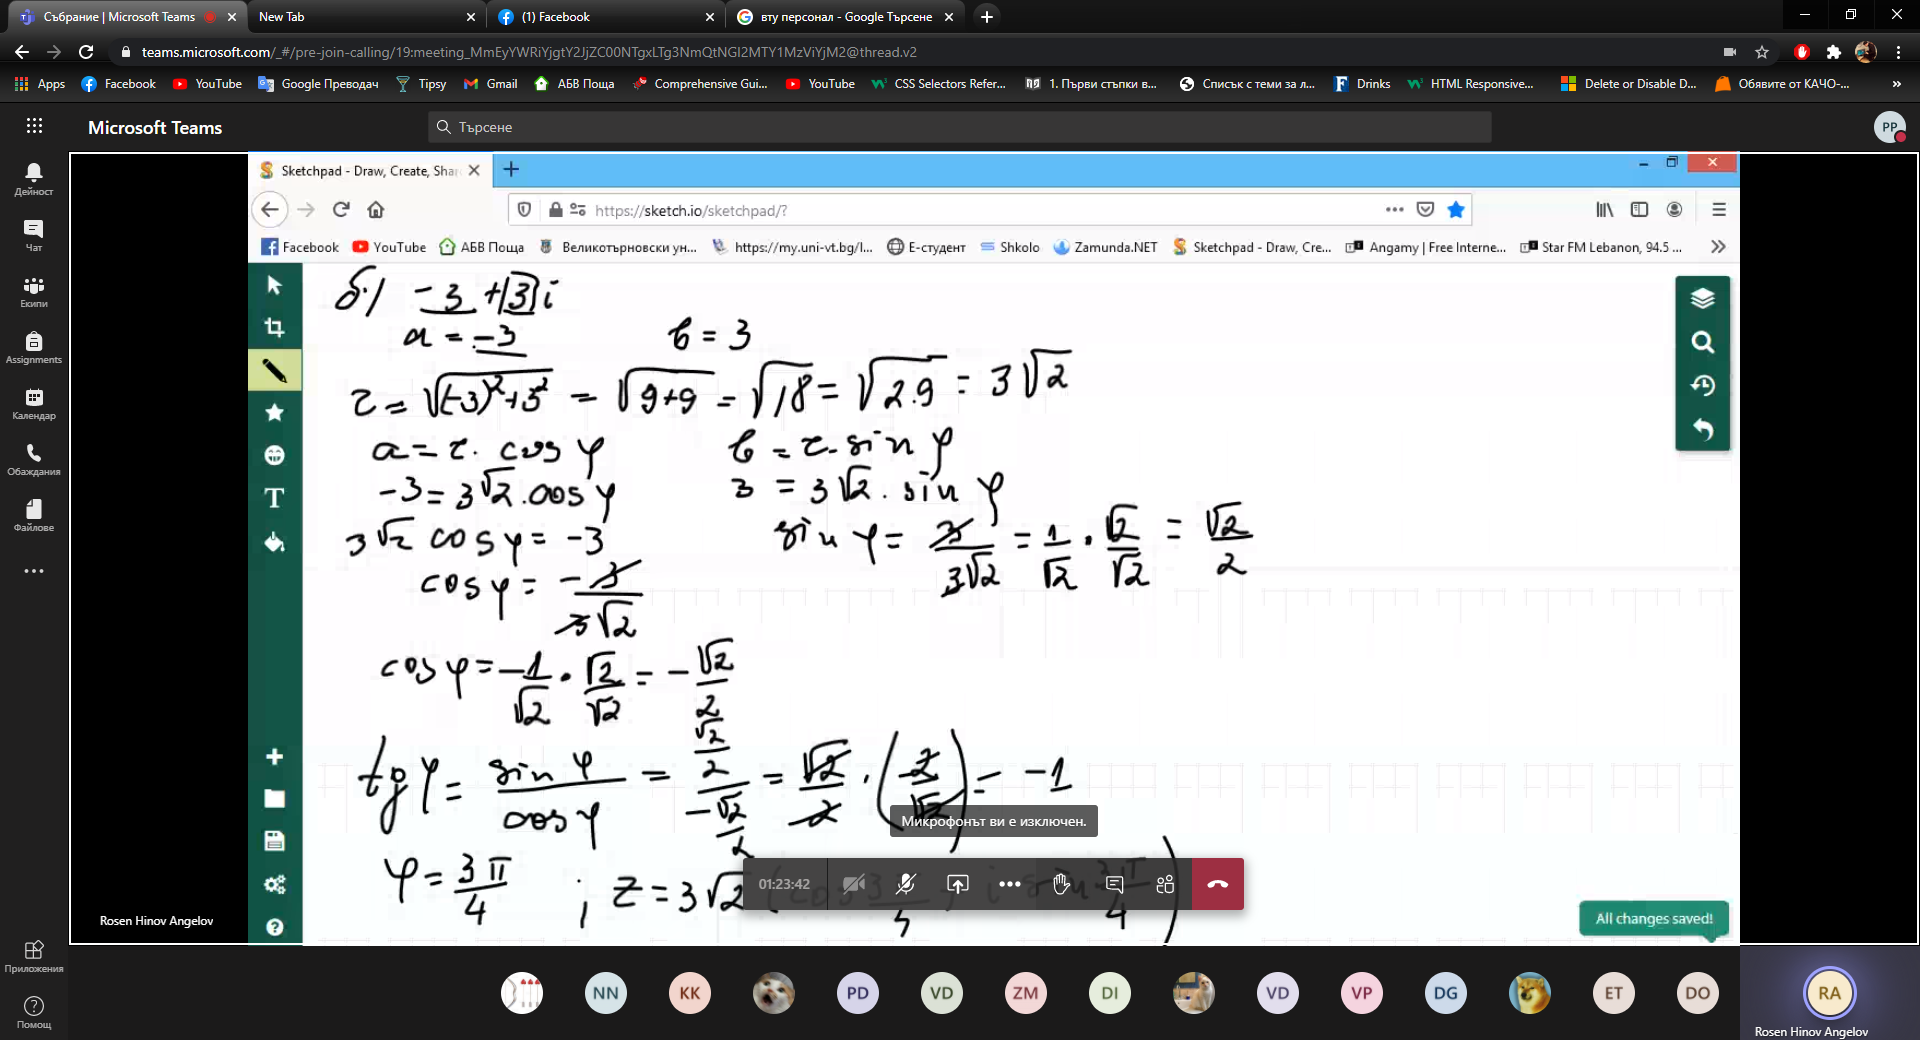 Събрание | Microsoft Teams
New Tab
(1) Facebook
вту персонал - Google Търсене
teams.microsoft.com/_#/pre-join-calling/19:meeting_MmEyYWRiYjgtY2JjZC00NTgxLTg3NmQtNGI2MTY1MzViYjM2@thread.v2
Apps Facebook YouTube Google Преводач Tipsy Gmail АБВ Поща Comprehensive Gui... YouTube CSS Selectors Refer... 1. Първи стъпки в... Списък с теми за л... Drinks HTML Responsive... Delete or Disable D... Обявите от КАЧО-... »
Microsoft Teams
Търсене
PP
Дейност
Чат
Екипи
Assignments
Календар
Обаждания
Файлове
Приложения
Помощ
Sketchpad - Draw, Create, Shar
https://sketch.io/sketchpad/?
Facebook YouTube АБВ Поща Великотърновски ун... https://my.uni-vt.bg/l... Е-студент Shkolo Zamunda.NET Sketchpad - Draw, Cre... Angamy | Free Interne... Star FM Lebanon, 94.5 ...
б.) -3 + 3i
a = -3 b = 3
r = √(-3)²+3² = √9+9 = √18 = √2.9 = 3√2
a = r. cos φ b = r. sin φ
-3 = 3√2 . cos φ 3 = 3√2 . sin φ
3√2 cos φ = -3 sin φ = 3/3√2 = 1/√2 . √2/√2 = √2/2
cos φ = -3/3√2
cos φ = -1/√2 . √2/√2 = -√2/2
tg φ = sin φ/cos φ = √2/2/-√2/2 = √2/2 . (-2/√2) = -1
Микрофонът ви е изключен.
φ = 3π/4 ; z = 3√2
01:23:42
All changes saved!
Rosen Hinov Angelov
NN KK PD VD ZM DI VD VP DG ET DO RA
Rosen Hinov Angelov